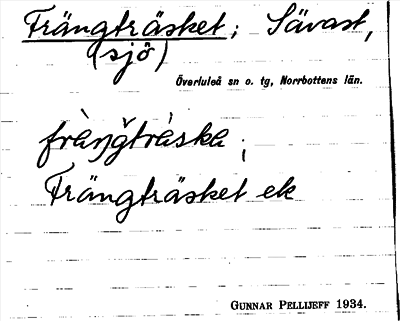 Frängträsket; Sävast,
(sjö)
Överluleå sn o. tg, Norrbottens län.
fràŋ̌gtràska ;
Frängträsket ek
GUNNAR PELLIJEFF 1934.